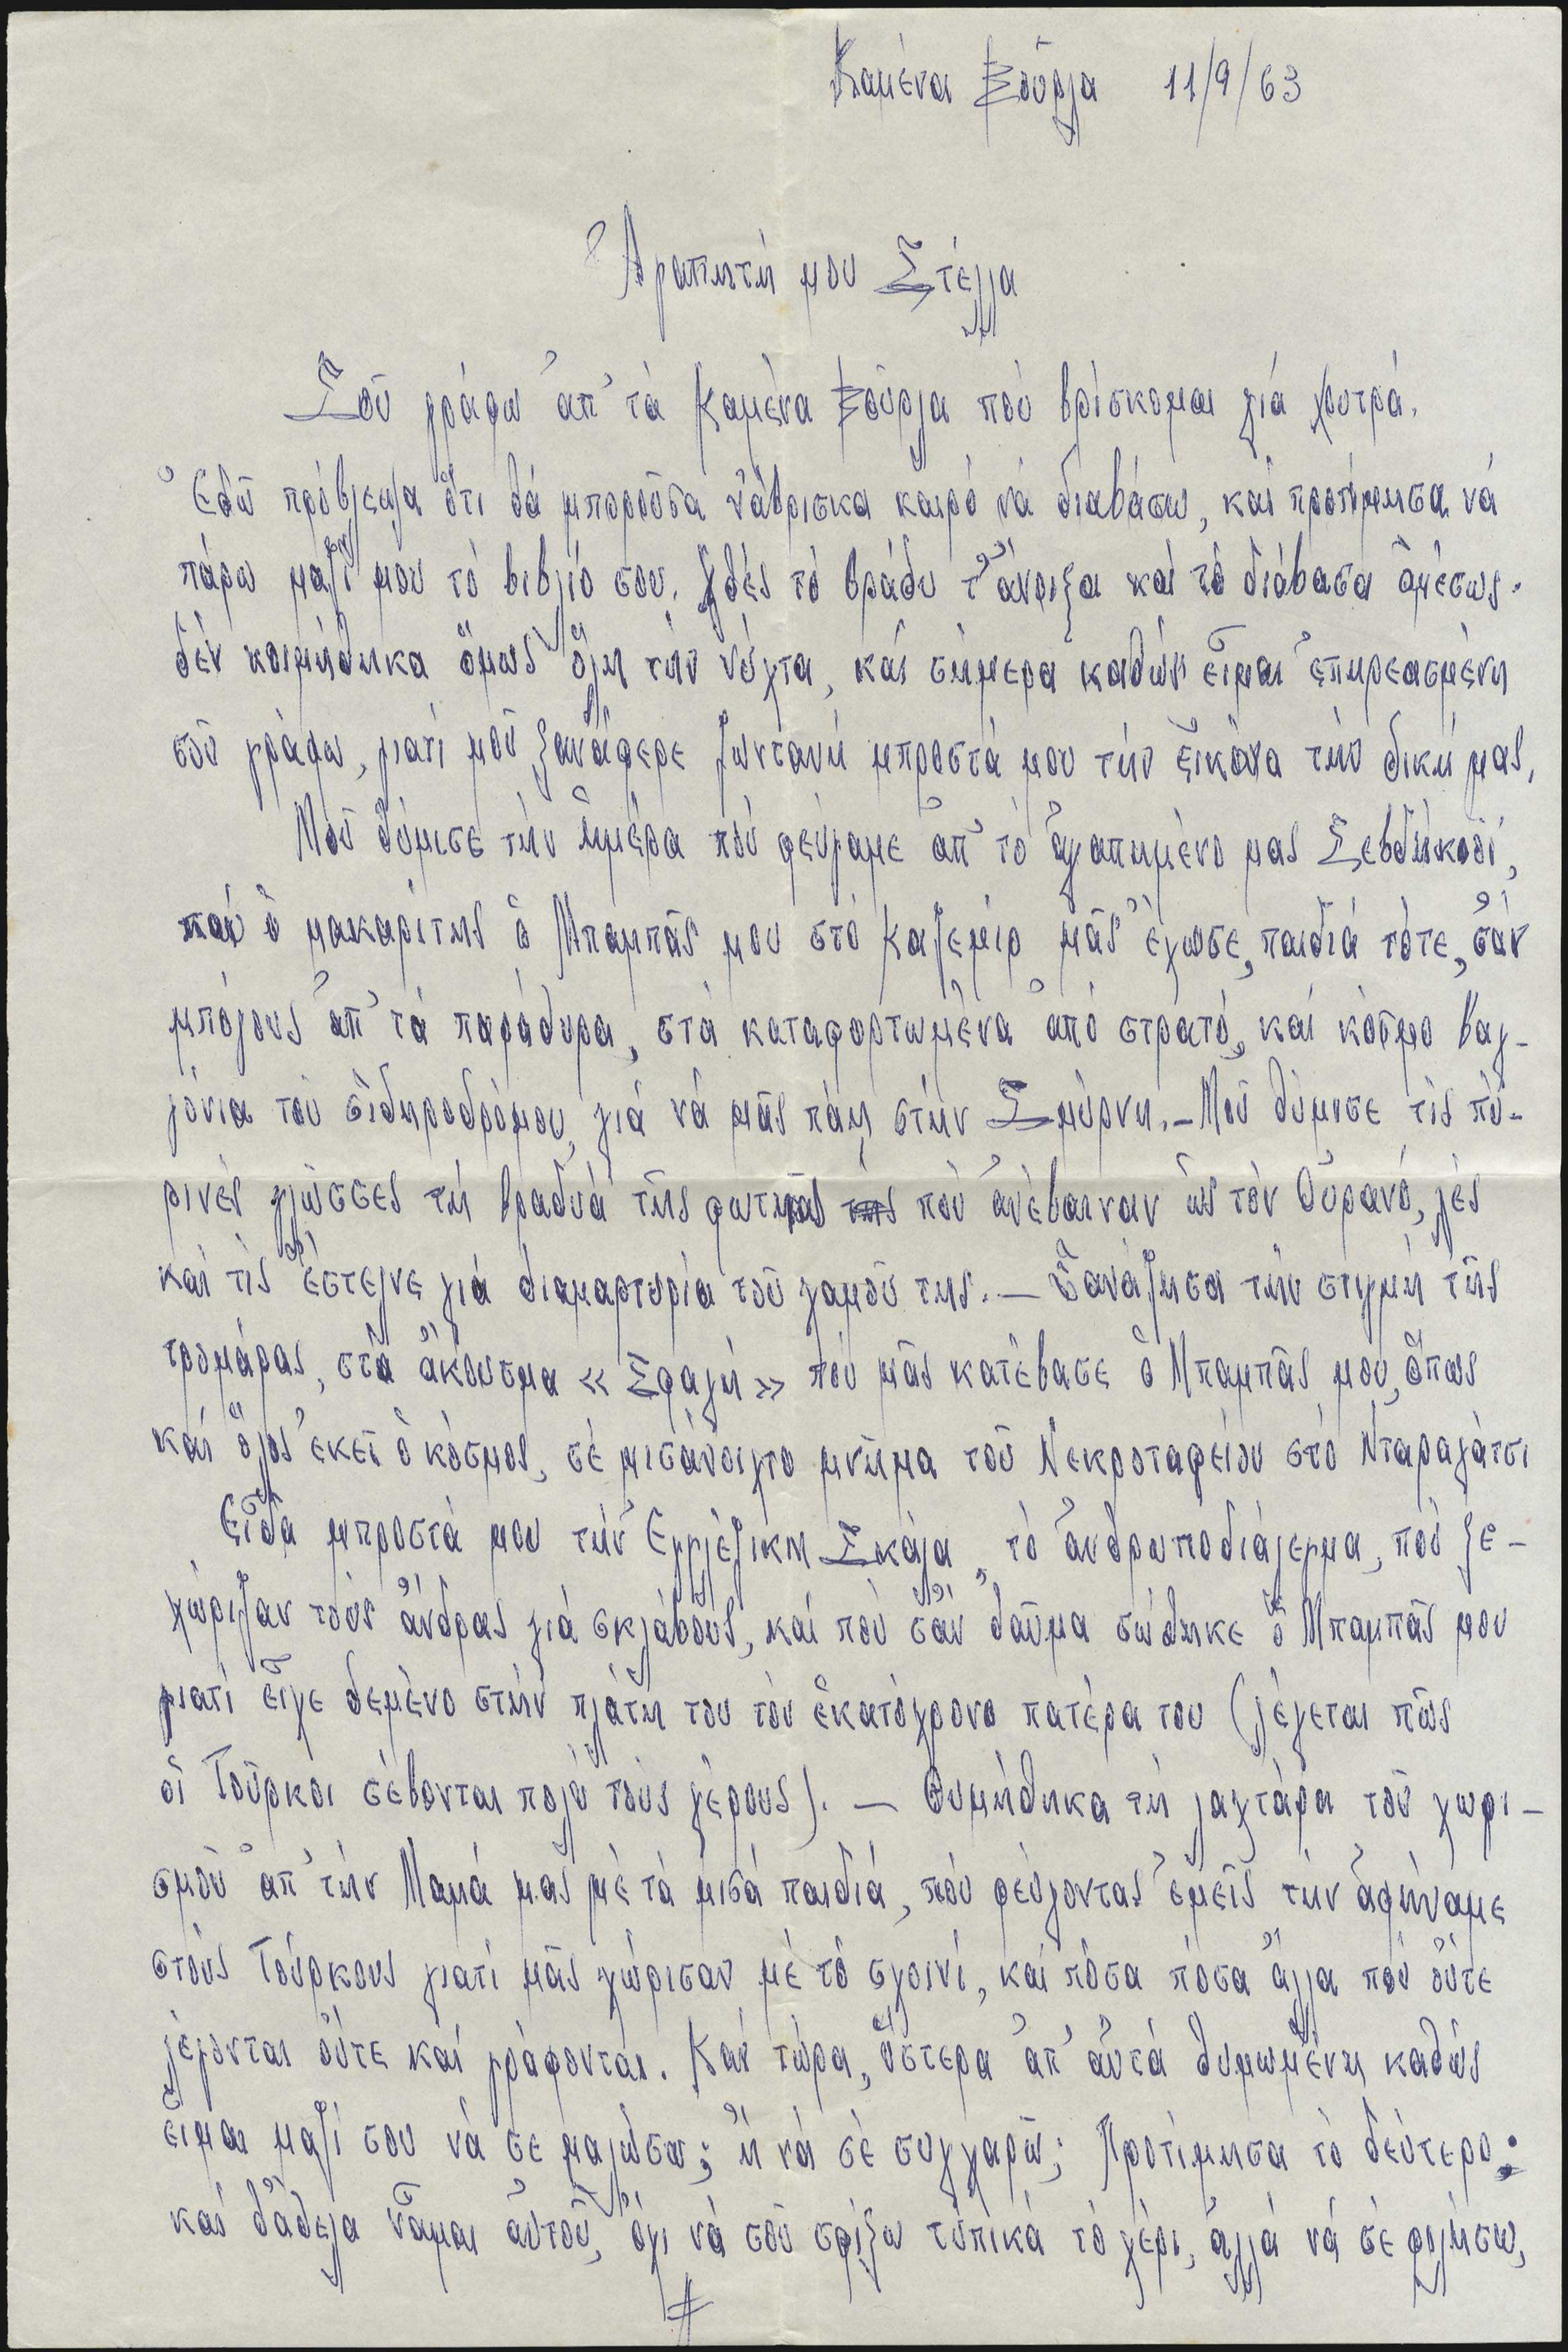 Καμένα Βοῦρλα 11/9/63
Ἀγαπητή μου Στέλλα
Σοῦ γράφω ἀπ' τὰ Καμένα Βοῦρλα πού βρίσκομαι γιά λουτρά.
Ἐδῶ πρόβλεψα ὅτι θά μποροῦσα νἄβρισκα καιρό νά διαβάσω, καί προτίμησα νά
πάρω μαζί μου τό βιβλίο σου. Χθές τό βράδυ τ' ἄνοιξα καί τό διάβασα ἀμέσως.
δέν κοιμήθηκα ὅμως ὅλη τήν νύχτα, καί σήμερα καθώς εἶμαι ἐπηρεασμένη
σοῦ γράφω, γιατί μοῦ ξανάφερε ζωντανή μπροστά μου τήν εἰκόνα τήν δική μας,
Μοῦ θύμισε τήν ἡμέρα πού φεύγαμε ἀπ' τό ἀγαπημένο μας Σεβδήκιοϊ,
πού ὁ μακαρίτης ὁ Μπαμπᾶς μου στό Καζεμίρ μᾶς ἔχωσε, παιδιά τότε, σάν
μπόγους ἀπ' τά παράθυρα, στά καταφορτωμένα ἀπό στρατό, καί κόσμο βαγ-
γόνια τοῦ σιδηροδρόμου, γιά νά μᾶς πάη στήν Σμύρνη. - Μοῦ θύμισε τίς πύ-
ρινες γλῶσσες τή βραδυά τῆς φωτιᾶς της πού ἀνέβαιναν ὡς τόν Οὐρανό, λές
καί τίς ἔστελνε γιά διαμαρτυρία τοῦ χαμοῦ της. - Ξανάζησα τήν στιγμή τῆς
τρομάρας, στό ἄκουσμα « Σφαγή » πού μᾶς κατέβασε ὁ Μπαμπᾶς μου, ὅπως
καί ὅλος ἐκεῖ ὁ κόσμος, σέ μισάνοιχτο μνῆμα τοῦ Νεκροταφείου στό Νταραγάτσι
Εἶδα μπροστά μου τήν Ἐγγλέζικη Σκάλα, τό ἀνθρωποδιάλεγμα, πού ξε-
χώριζαν τούς ἄνδρας γιά σκλάβους, καί πού σάν θαῦμα σώθηκε ὁ Μπαμπᾶς μου
γιατί εἶχε δεμένο στήν πλάτη του τόν ἑκατόχρονο πατέρα του (λέγεται πῶς
οἱ Τοῦρκοι σέβονται πολύ τούς γέρους). - Θυμήθηκα τή λαχτάρα τοῦ χωρι-
σμοῦ ἀπ' τήν Μαμά μας μέ τά μισά παιδιά, πού φεύγοντας ἐμεῖς τήν ἀφήναμε
στούς Τούρκους γιατί μᾶς χώρισαν μέ τό σχοινί, καί πόσα πόσα ἄλλα πού οὔτε
λέγονται οὔτε καί γράφονται. Καί τώρα, ὕστερα ἀπ' αὐτά θυμωμένη καθώς
εἶμαι μαζί σου νά σε μαλώσω; ἤ νά σέ συγχαρῶ; Προτίμησα τό δεύτερο:
καί θἄθελα νἆμαι αὐτοῦ, ὄχι νά σοῦ σφίξω τυπικά τό χέρι, ἀλλά νά σέ φιλήσω,